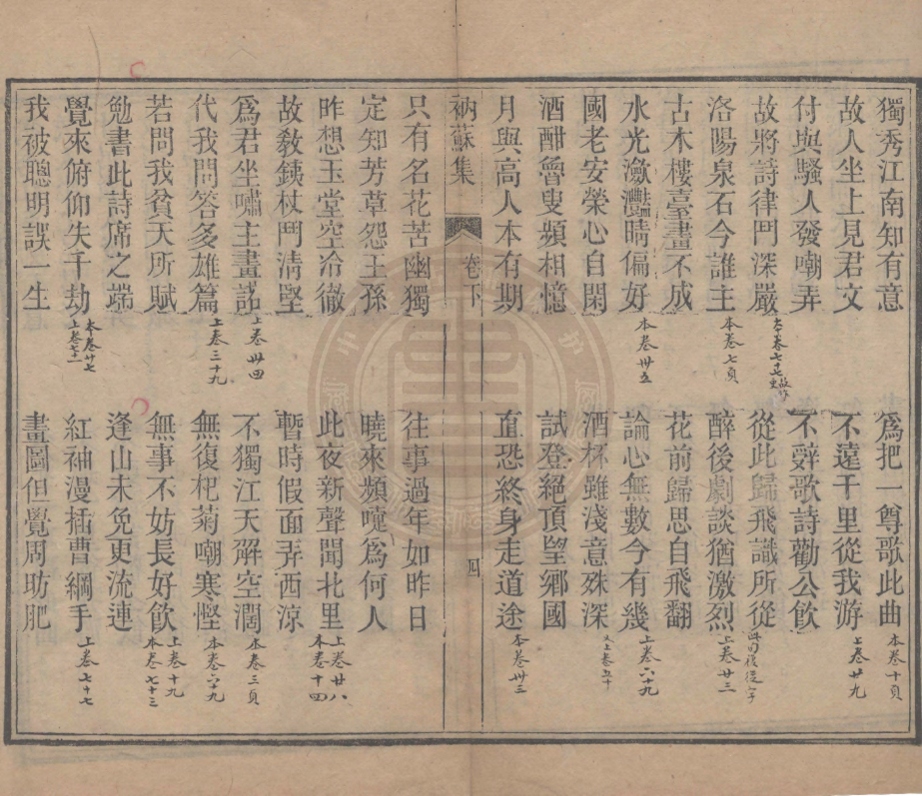 獨秀江南知有意 為把一尊歌此曲 本卷十頁
故人坐上見君文 不遠千里從我游 上卷廿九
付與騷人發嘲弄 不辭歌詩勸公飲
故將詩律鬥深嚴 從此歸飛識所從
洛陽泉石今誰主 本卷七頁 醉後劇談猶激烈 上卷廿三
古木樓臺畫不成 花前歸思自飛翻
水光瀲灩晴偏好 本卷卅五 論心無數今有幾 上卷六十九
國老安榮心自閑 酒杯雖淺意殊深 又上卷五十
酒酣魯叟頻相憶 試登絕頂望鄉國
月與高人本有期 直恐終身走道途 本卷卅三
衲蘇集 卷下 四
只有名花苦幽獨 往事過年如昨日
定知芳草怨王孫 曉來頻嚏為何人
昨想玉堂空冷徹 此夜新聲聞北里 上卷廿八 本卷十四
故教銕杖鬥清堅 暫時假面弄西涼
為君坐嘯主畫諾 上卷卅四 不獨江天解空濶 本卷三頁
代我問答多雄篇 上卷三十九 無復杞菊嘲寒慳 本卷六十九
若問我貧天所賦 無事不妨長好飲 上卷十九 本卷七十三
勉書此詩席之端 逢山未免更流連
覺來俯仰失千劫 本卷廿七 上卷七十一 紅袖漫插曹綱手 上卷七十七
我被聰明誤一生 畫圖但覺周昉肥